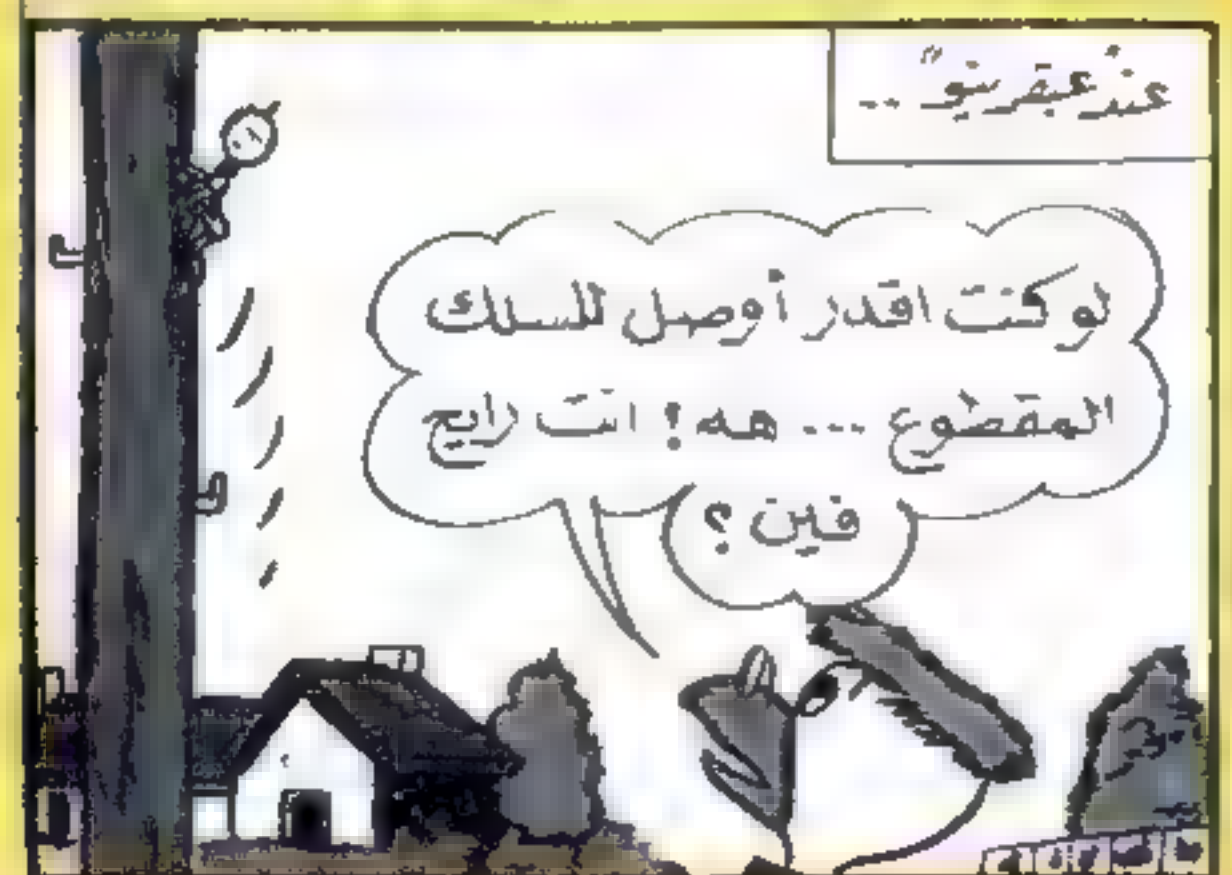 عند عبقرينو ..
لو كنت اقدر أوصل للسلك
المقطوع ... هه ! انت رايح
فين ؟